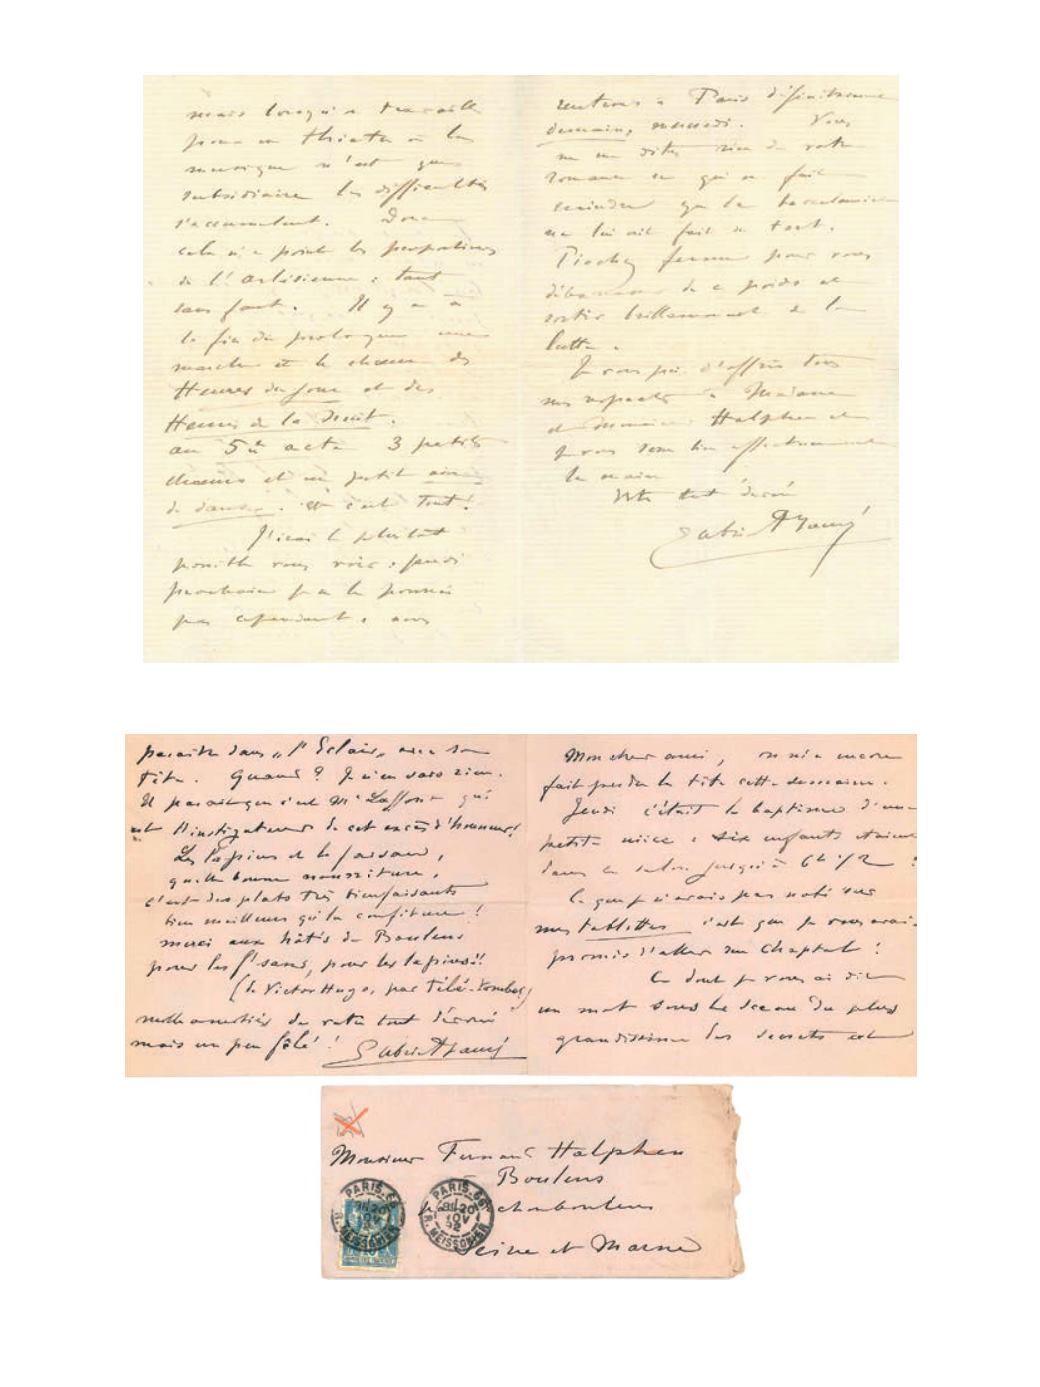 mais lorsqu'on travaille
pour un théâtre où la
musique n'est que
subsidiaire les difficultés
s'accumulent. Donc
cela n'a point les proportions
de l'Arlésienne : tant
sans faut. Il y a à
la fin du prologue une
marche et le chœur des
Heures du jour et des
Heures de la Nuit.
au 5e acte 3 petits
chœurs et un petit air
de danse. Et c'est tout!
J'irai le plus tôt
possible vous voir : jeudi
prochain je ne le pourrai
pas cependant, nous
rentrons à Paris définitivement
demain, mercredi. Vous
ne me dites rien de votre
romance ce qui me fait
craindre que le baccalauréat
ne lui ait fait du tort.
Piochez ferme pour vous
débarrasser de ce poids et
sortir brillamment de la
lutte.
Je vous prie d'offrir tous
mes respects à Madame
et Monsieur Halphen et
je vous serre bien affectueusement
la main
Votre tout dévoué
Gabriel Fauré
paraître dans "l'Eclair" avec son
titre. Quand? Je n'en sais rien.
Il paraît que c'est Mr Laffon qui
est l'instigateur de cet excès d'honneur!
Les lapins et le faisan,
quelle bonne nourriture,
c'est des plats très bienfaisants
bien meilleurs qu'la confiture!
merci aux hâtis de Boulens
pour les f'sans, pour les lapins!!
(de Victor Hugo, par télé-tombes)
mille amitiés de votre tout dévoué
mais un peu fêlé! Gabriel Fauré
Mon cher ami, on m'a encore
fait perdre la tête cette semaine.
Jeudi c'était le baptême d'une
petite nièce : six enfants étaient
dans le salon jusqu'à 6h 1/2 !
Ce que je n'avais pas noté sur
mes tablettes c'est que je vous avais
promis d'aller rue Chaptal!
Ce dont je vous ai dit
un mot sous le sceau du plus
grandissime des secrets est
Monsieur Fernand Halphen
Boulens
chonboulens
Seine et Marne
PARIS 66
20 NOV
R. MEISSONIER
PARIS 66
20 NOV
R. MEISSONIER